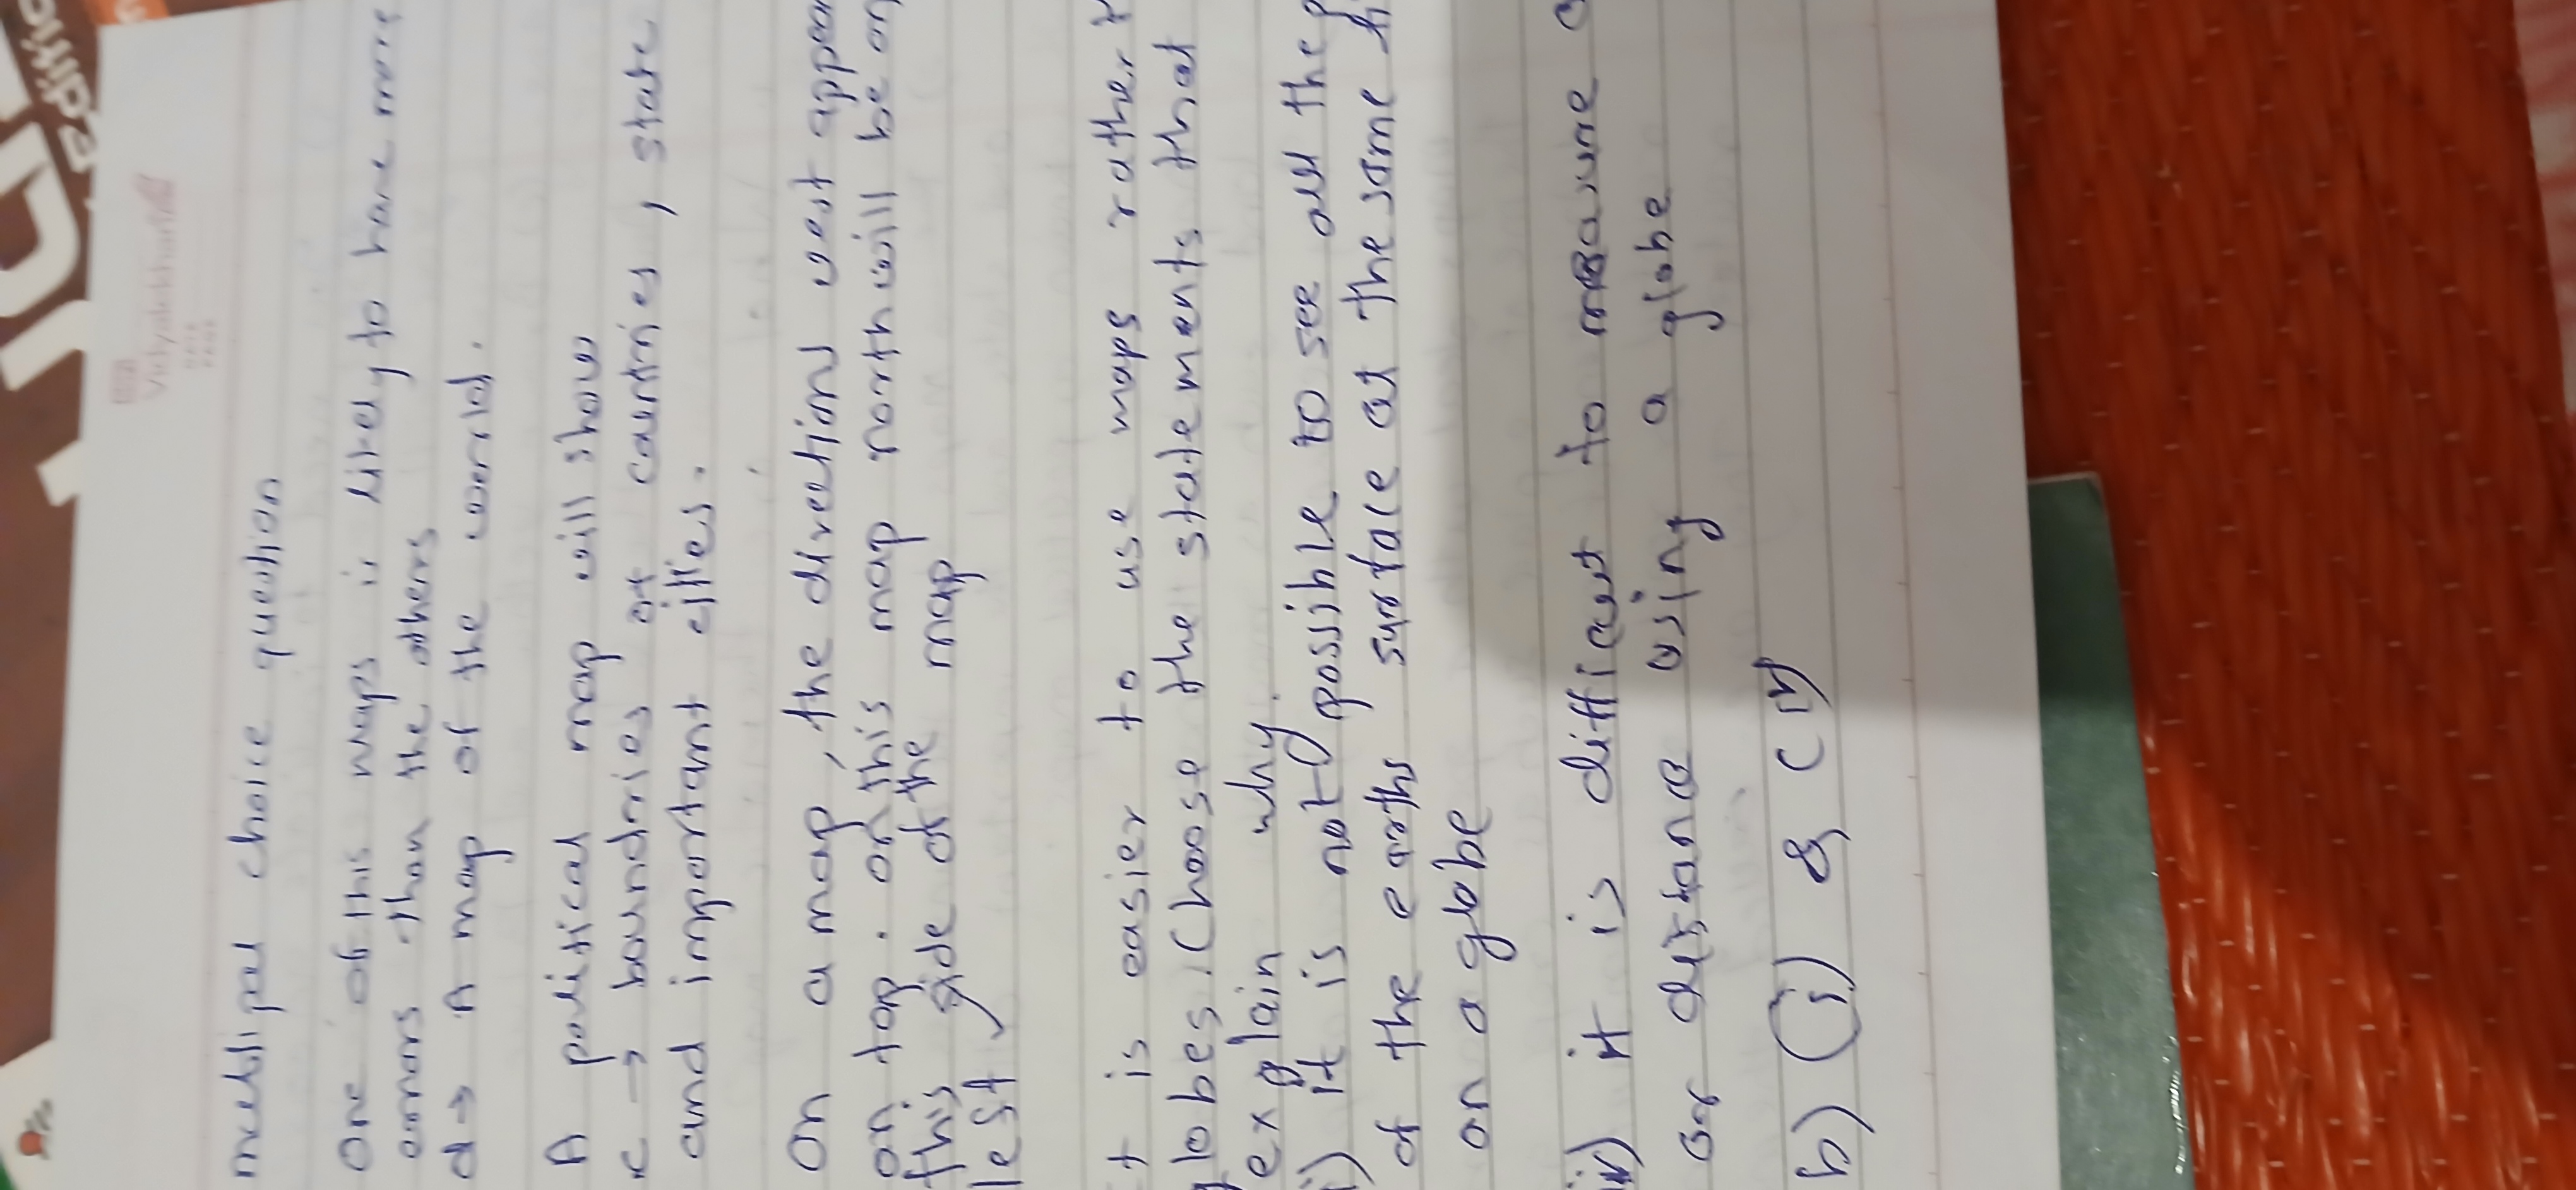 Vidyalekhan
DATE
PAGE
multipal choice quedion
One of this maps is likely to have more
errors than the others
d → A map of the world.
A political map will show
c → boundries of countries, state
and important cities.
On a map, the direction west appea
on top. on this map north will be on
this side of the map
lest
t is easier to use maps rather t
globes. Choose the statements that
explain why.
i) it is not possible to see all the p
of the earths surface at the same ti
on a globe
iv) it is difficult to measure a
or distance using a globe
b) (i) & (iv)